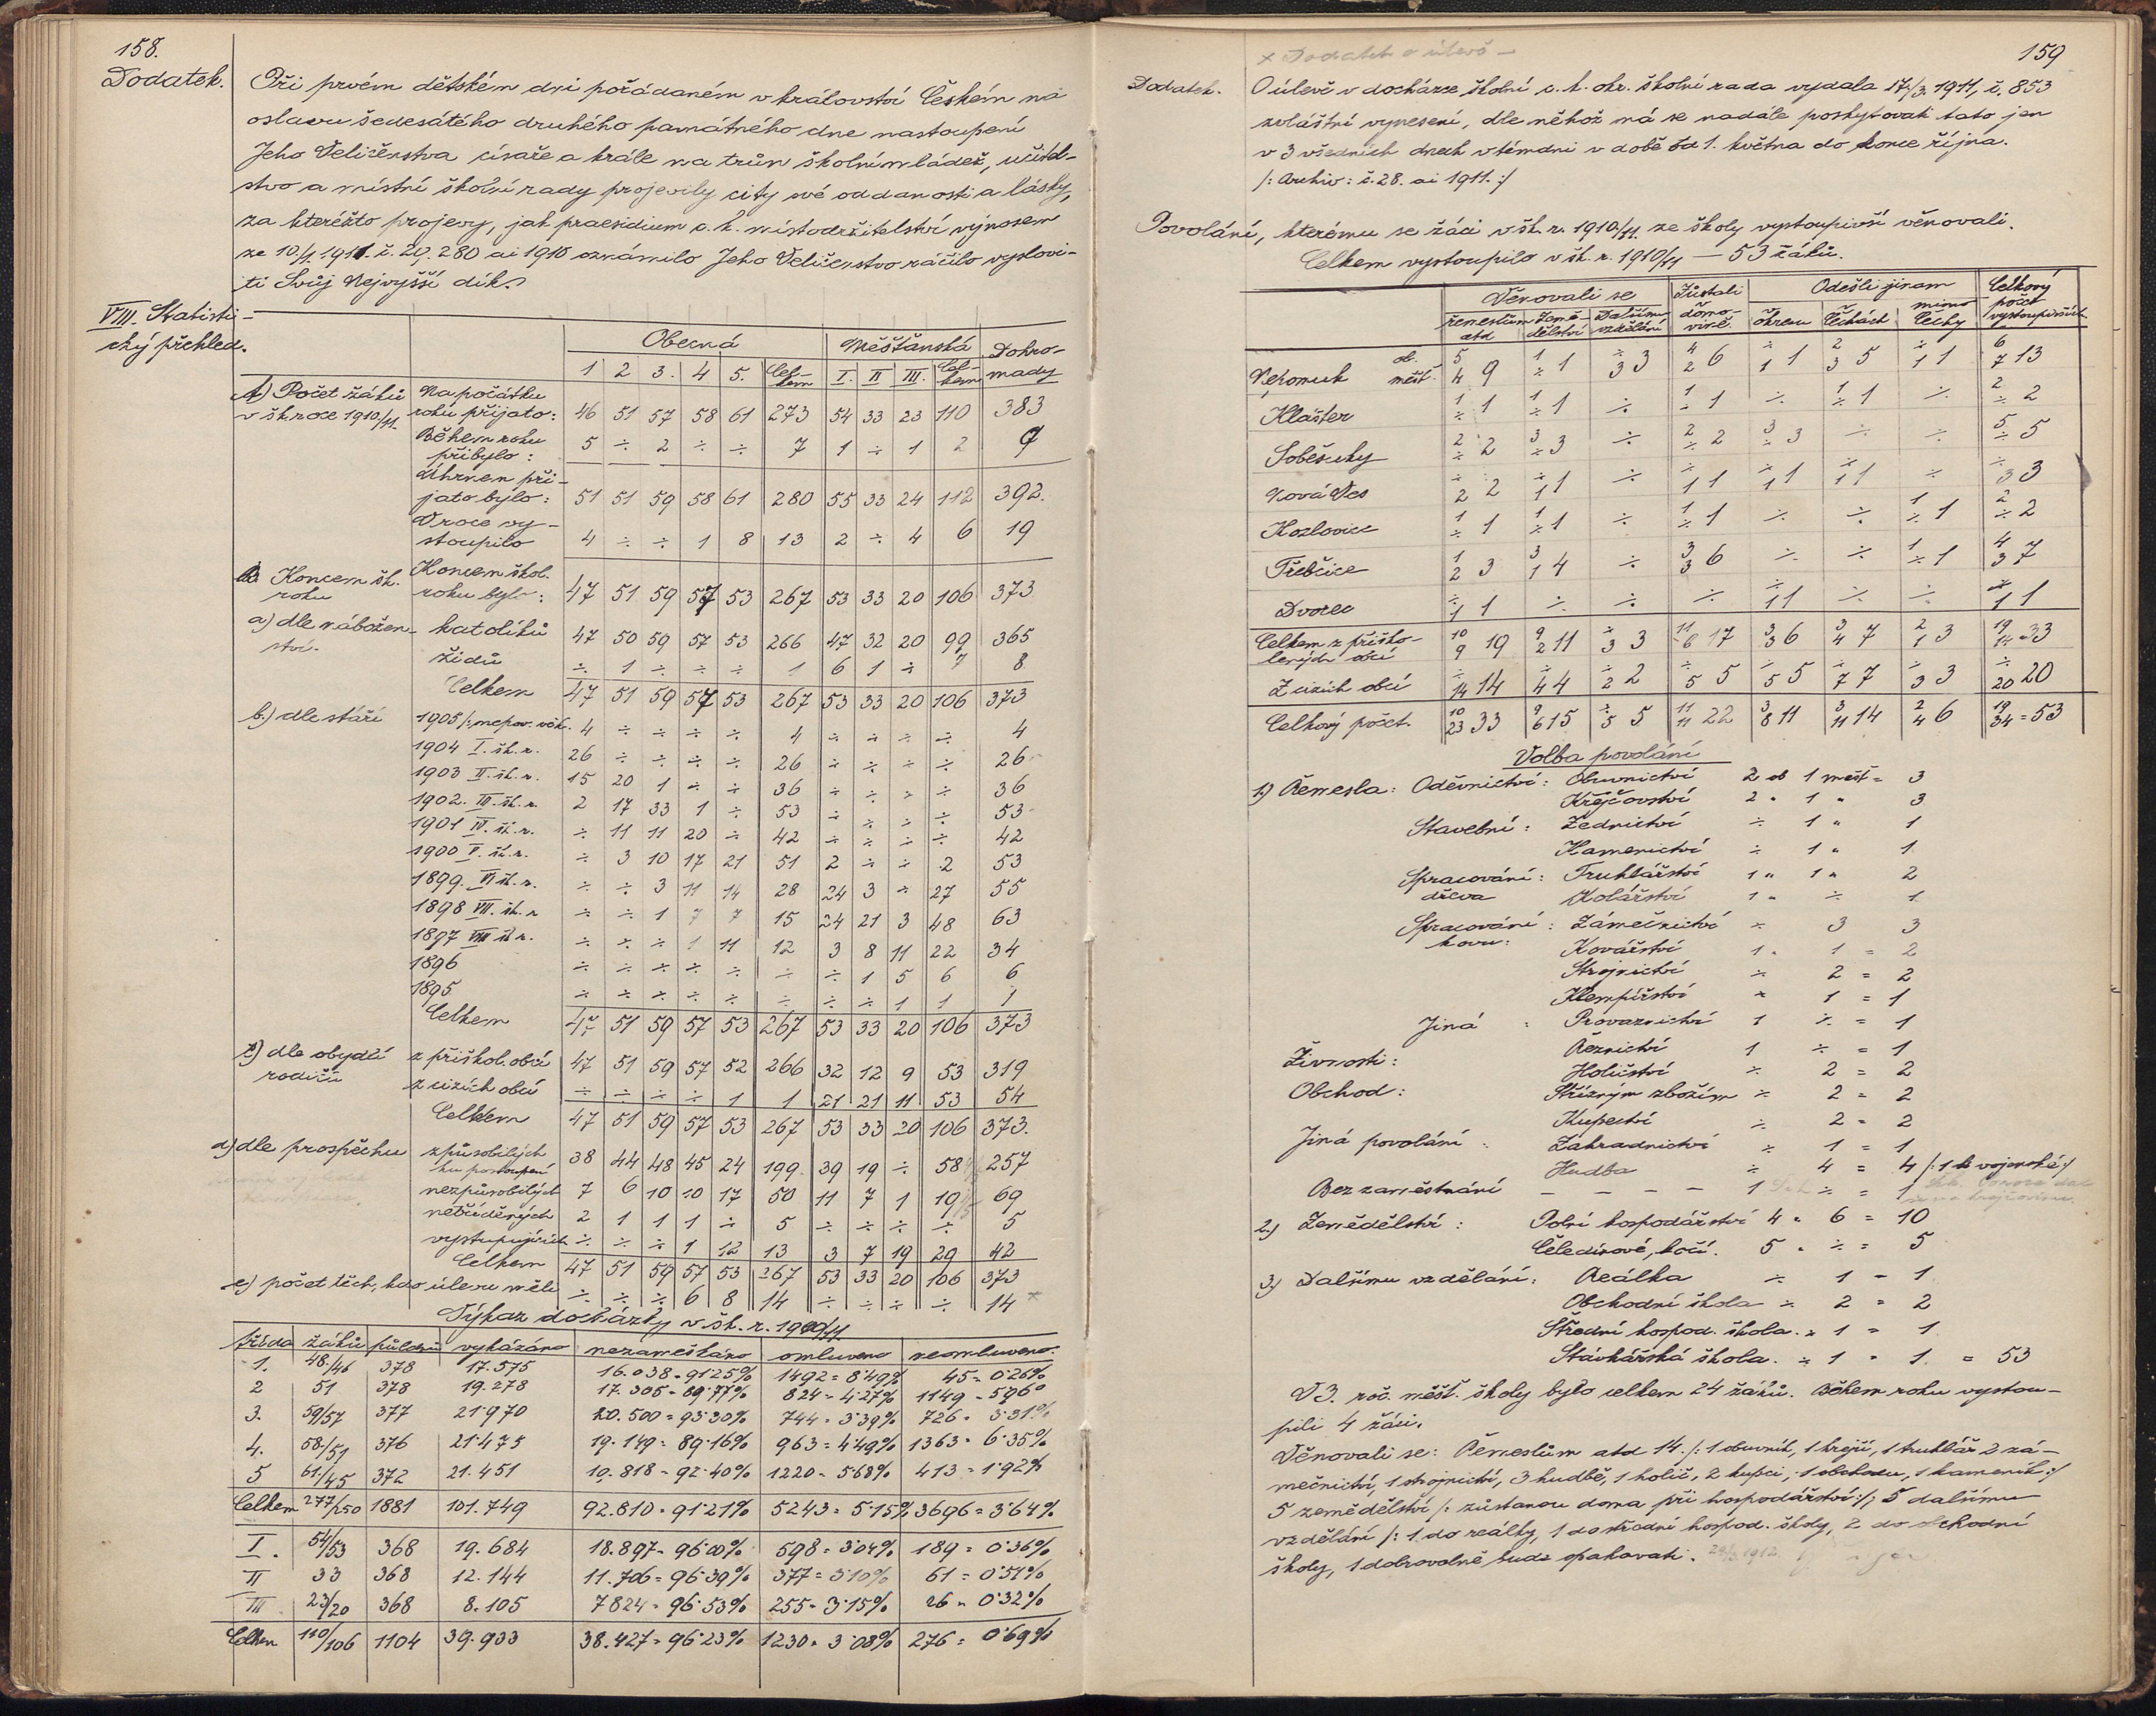 158.
Dodatek.
Při prvém dětském dni pořádaném v království Českém na
oslavu šedesátého druhého památného dne nastoupení
Jeho Veličenstva císaře a krále na trůn školní mládež, učitel-
stvo a místní školní rady projevily city své oddanosti a lásky,
za kteréžto projevy, jak praesidium c. k. místodržitelství výnosem
ze 10./4. 1911. č. 29.280 ai 1910 oznámilo Jeho Veličenstvo ráčilo vyslovi-
ti Svůj Nejvyšší dík.
VIII. Statisti-
cký přehled.
Obecná Měšťanská Dohro-
mady
1 2 3. 4 5. Cel-
kem I. II III. Cel-
kem
A) Počet žáků
v šk roce 1910/11.
Na počátku
roku přijato: 46 51 57 58 61 273 54 33 23 110 383
Během roku
přibylo: 5 ÷ 2 ÷ ÷ 7 1 ÷ 1 2 9
Úhrnem při-
jato bylo: 51 51 59 58 61 280 55 33 24 112 392.
V roce vy-
stoupilo 4 ÷ ÷ 1 8 13 2 ÷ 4 6 19
B. Koncem šk.
roku
Koncem škol.
roku bylo: 47 51 59 57 53 267 53 33 20 106 373
a) dle nábožen-
ství.
katolíků 47 50 59 57 53 266 47 32 20 99 365
židů ÷ 1 ÷ ÷ ÷ 1 6 1 ÷ 7 8
Celkem 47 51 59 57 53 267 53 33 20 106 373
b.) dle stáří
1905 /: nepov. věk. 4 ÷ ÷ ÷ ÷ 4 ÷ ÷ ÷ ÷ 4
1904 I. šk. r. 26 ÷ ÷ ÷ ÷ 26 ÷ ÷ ÷ ÷ 26
1903 II. šk. r. 15 20 1 ÷ ÷ 36 ÷ ÷ ÷ ÷ 36
1902. III. šk. r. 2 17 33 1 ÷ 53 ÷ ÷ ÷ ÷ 53
1901 IV. šk. r. ÷ 11 11 20 ÷ 42 ÷ ÷ ÷ ÷ 42
1900 V. šk. r. ÷ 3 10 17 21 51 2 ÷ ÷ 2 53
1899. VI šk. r. ÷ ÷ 3 11 14 28 24 3 ÷ 27 55
1898 VII. šk. r ÷ ÷ 1 7 7 15 24 21 3 48 63
1897 VIII šk r. ÷ ÷ ÷ 1 11 12 3 8 11 22 34
1896 ÷ ÷ ÷ ÷ ÷ ÷ ÷ 1 5 6 6
1895 ÷ ÷ ÷ ÷ ÷ ÷ ÷ ÷ 1 1 1
Celkem 47 51 59 57 53 267 53 33 20 106 373
c) dle obydlí
rodičů
z přiškol. obcí 47 51 59 57 52 266 32 12 9 53 319
z cizích obcí ÷ ÷ ÷ ÷ 1 1 21 21 11 53 54
Celkem 47 51 59 57 53 267 53 33 20 106 373.
d) dle prospěchu
způsobilých
ku postoupení 38 44 48 45 24 199 39 19 ÷ 58 257
nezpůsobilých 7 6 10 10 17 50 11 7 1 19 69
netříděných 2 1 1 1 ÷ 5 ÷ ÷ ÷ ÷ 5
vystupujících ÷ ÷ ÷ 1 12 13 3 7 19 29 42
Celkem 47 51 59 57 53 267 53 33 20 106 373
e) počet těch, kdo úlevu měli ÷ ÷ ÷ 6 8 14 ÷ ÷ ÷ ÷ 14 ×
Výkaz docházky v šk. r. 1910/11.
třída žáků půldnů vykázáno nezameškáno omluveno neomluveno.
1. 48/46 378 17.575 16.038 = 91·25% 1492 = 8·49% 45 = 0·26%
2 51 378 19.278 17.305 = 89·77% 824 = 4·27% 1149 = 5·96%
3. 59/57 377 21970 20.500 = 93·30% 744 = 3·39% 726 = 3·31%
4. 58/51 376 21475 19.149 = 89·16% 963 = 4·49% 1363 = 6·35%
5 61/45 372 21.451 19.818 = 92·40% 1220 = 5·68% 413 = 1·92%
Celkem 277/250 1881 101.749 92.810 = 91·21% 5243 = 5·15% 3696 = 3·64%
I. 54/53 368 19.684 18.897 = 96·00% 598 = 3·04% 189 = 0·36%
II 33 368 12.144 11.706 = 96·39% 377 = 3·10% 61 = 0·51%
III 23/20 368 8.105 7824 = 96·53% 255 = 3·15% 26 = 0·32%
Celkem 110/106 1104 39.933 38.427 = 96·23% 1230 = 3·08% 276 = 0·69%
× Dodatek o úlevě —
159
Dodatek.
O úlevě v docházce školní c. k. okr. školní rada vydala 17./3. 1911, č. 853
zvláštní vynesení, dle něhož má se nadále poskytovati tato jen
v 3 všedních dnech v témdni v době od 1. května do konce října.
/: Archiv: č. 28. ai 1911. :/
Povolání, kterému se žáci v šk. r. 1910/11. ze školy vystoupivší věnovali.
Celkem vystoupilo v šk. r. 1910/11 — 53 žáků.
Věnovali se Zůstali
domo-
vině. Odešli jinam Celkový
počet
vystoupivších
řemeslům
atd Země-
dělství Dalšímu
vzdělání okresu Čechách mimo
Čechy
Nepomuk ob. 5 1 ÷ 4 ÷ 2 ÷ 6
měšť. 4 9 ÷ 1 3 3 2 6 1 1 3 5 1 1 7 13
Klášter 1/÷ 1 1/÷ 1 ÷ 1/÷ 1 ÷ 1/÷ 1 ÷ 2/÷ 2
Soběsuky 2/÷ 2 3/÷ 3 ÷ 2/÷ 2 3/÷ 3 ÷ ÷ 5/÷ 5
Nová Ves ÷/2 2 ÷/1 1 ÷ ÷/1 1 ÷/1 1 ÷/1 1 ÷ ÷/3 3
Kozlovice 1/÷ 1 1/÷ 1 ÷ 1/÷ 1 ÷ ÷ 1/÷ 1 2/÷ 2
Třebčice 1/2 3 3/1 4 ÷ 3/3 6 ÷ ÷ 1/÷ 1 4/3 7
Dvorec ÷/1 1 ÷ ÷ ÷ ÷/1 1 ÷ ÷ ÷/1 1
Celkem z přiško-
lených obcí 10/9 19 9/2 11 ÷/3 3 11/6 17 3/3 6 3/4 7 2/1 3 19/14 = 33
Z cizích obcí ÷/14 14 ÷/4 4 ÷/2 2 ÷/5 5 ÷/5 5 ÷/7 7 ÷/3 3 ÷/20 20
Celkový počet. 10/23 33 9/6 15 ÷/5 5 11/11 22 3/8 11 3/11 14 2/4 6 19/34 = 53
Volba povolání
1.) Řemesla: Oděvnictví: Obuvnictví 2 ob 1 měšť = 3
Krejčovství 2 " 1 " 3
Stavební: Zednictví ÷ 1 " 1
Kamenictví ÷ 1 " 1
Spracování: Truhlářství 1 " 1 " 2
dřeva Kolářství 1 " ÷ 1
Spracování: Zámečnictví ÷ 3 3
kovu: Kovářství 1 " 1 = 2
Strojnictví ÷ 2 = 2
Klempířství ÷ 1 = 1
Jiná : Provaznictví 1 ÷ = 1
Řeznictví 1 ÷ = 1
Živnosti: Holičství ÷ 2 = 2
Obchod: Střižným zbožím ÷ 2 = 2
Kupectví ÷ 2 = 2
Jiná povolání : Zahradnictví ÷ 1 = 1
Hudba ÷ 4 = 4 /: 1 k vojenské :/
Bez zaměstnání — — — — 1 ÷ = 1
2.) Zemědělství: Polní hospodářství 4 " 6 = 10
Čeledínové, kočí. 5 " ÷ = 5
3.) Dalšímu vzdělání: Reálka ÷ 1 = 1
Obchodní škola ÷ 2 = 2
Střední hospod. škola. ÷ 1 = 1
Stávkářská škola. ÷ 1 = 1. = 53
V 3. roč. měšť. školy bylo celkem 24 žáků. Během roku vystou-
pili 4 žáci.
Věnovali se: Řemeslům atd 14. /: 1 obuvník, 1 krejčí, 1 truhlář 2 zá-
mečnictví, 1 strojnictví, 3 hudbě, 1 holič, 2 kupci, 1 obchodu, 1 kameník :/
5 zemědělství /: zůstanou doma při hospodářství :/, 5 dalšímu
vzdělání /: 1 do reálky, 1 do střední hospod. školy, 2 do obchodní
školy, 1 dobrovolně bude opakovati.